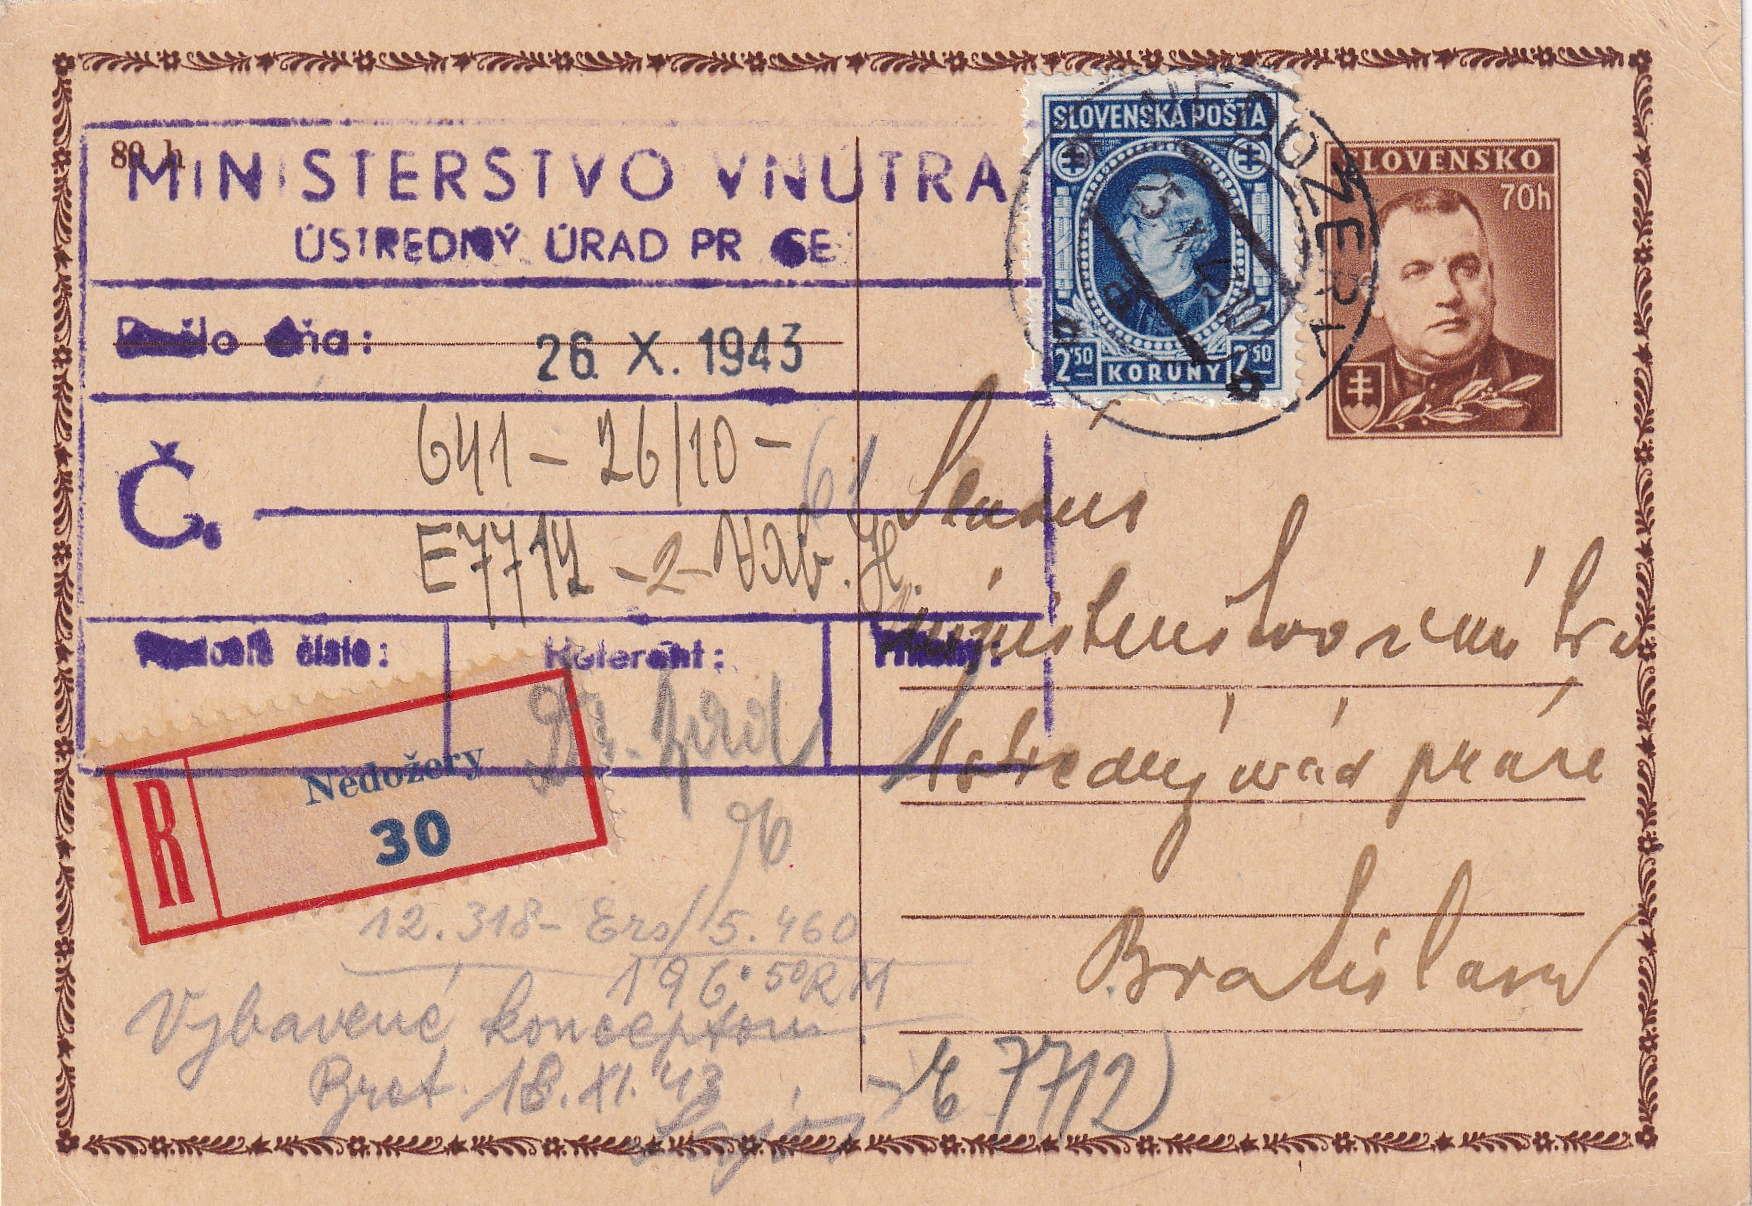 80 h
MINISTERSTVO VNÚTRA
ÚSTREDNÝ ÚRAD PR CE
Došlo dňa:
26. X. 1943
641 - 26/10 -
Č.
E7712 - 2 -
číslo:
Referent:
Prílohy:
Dr.
R
Nedožery
30
12.318- Ers/5.460
196.50 RM
Vybavené konceptom
Brat. 18. XI. 43
SLOVENSKÁ POŠTA
2.50 KORUNY 2.50
NEDOŽERY
25. X. 43
SLOVENSKO
70h
Slavné
Ministerstvo vnútra
Ústredný úrad práce
Bratislava
E 7712)